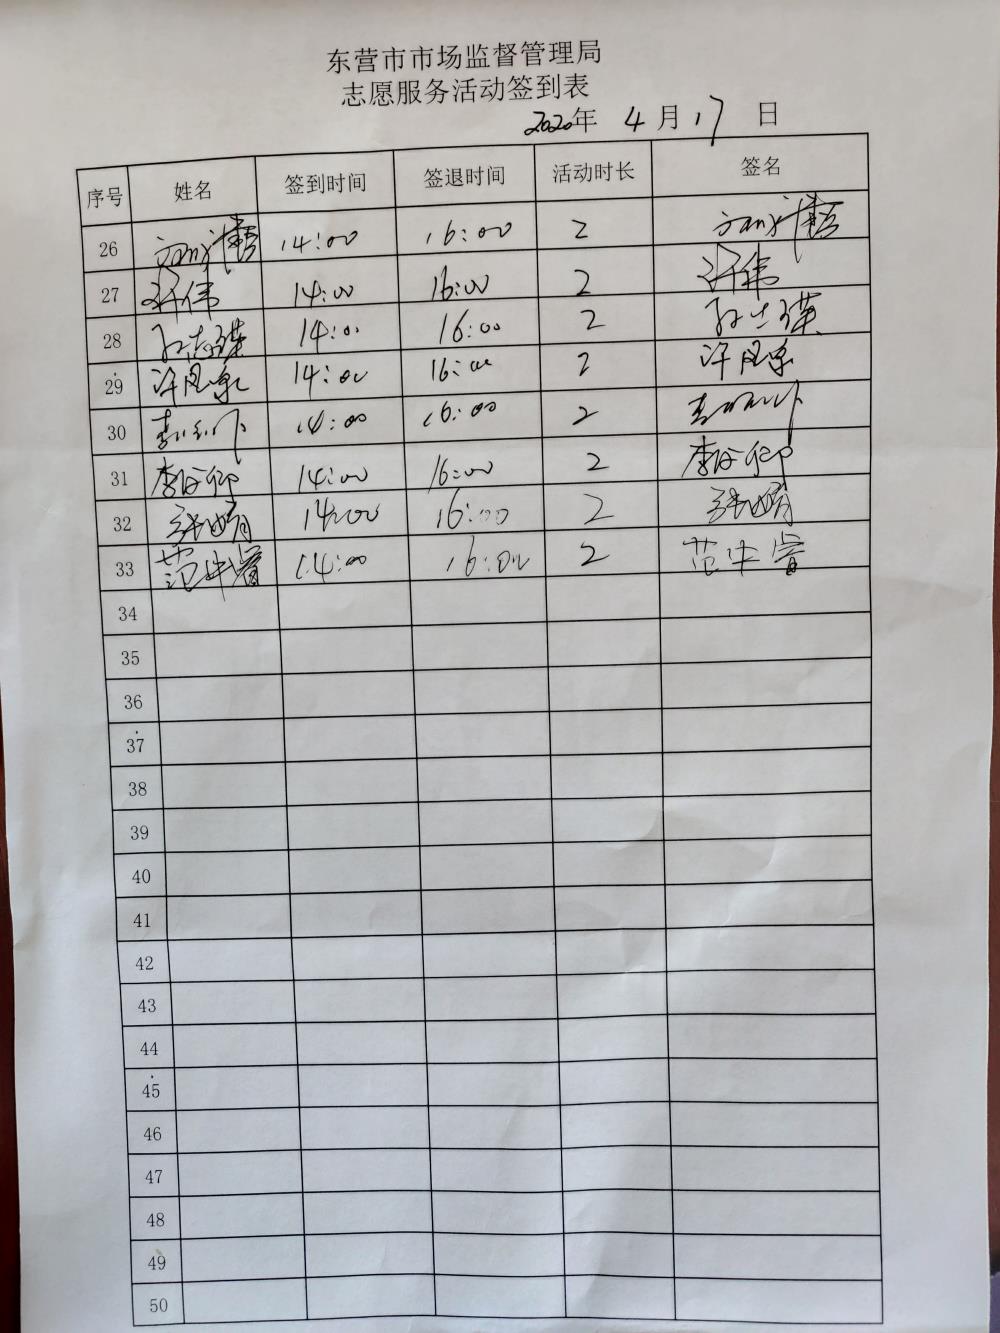 东营市市场监督管理局
志愿服务活动签到表
2020年 4 月 17 日
序号 姓名 签到时间 签退时间 活动时长 签名
26 14:00 16:00 2
27 许伟 14:00 16:00 2 许伟
28 孙志瑛 14:00 16:00 2 孙志瑛
29 许凤泉 14:00 16:00 2 许凤泉
30 14:00 16:00 2
31 李 14:00 16:00 2 李
32 张娟 14:00 16:00 2 张娟
33 范 睿 14:00 16:00 2 范 睿
34
35
36
37
38
39
40
41
42
43
44
45
46
47
48
49
50